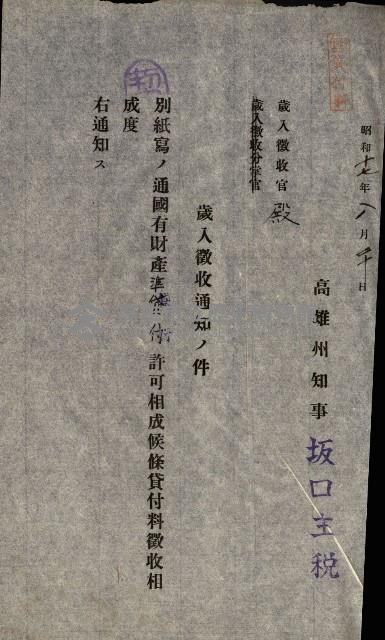 昭和十七年八月 日
高雄州知事 坂口主税
歲入徵收官 殿
歲入徵收分掌官
歲入徵收通知ノ件
別紙寫ノ通國有財產 許可相成候條貸付料徵收相
成度
右通知ス